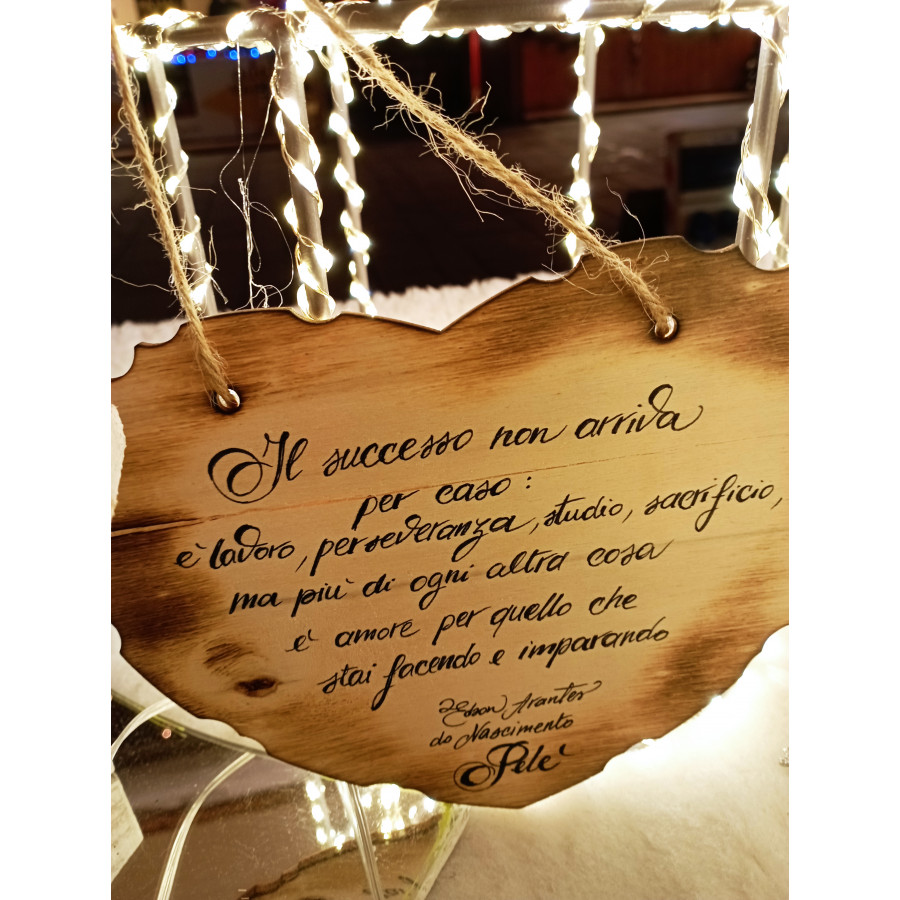 Il successo non arriva
per caso:
è lavoro, perseveranza, studio, sacrificio,
ma più di ogni altra cosa
è amore per quello che
stai facendo e imparando
Edson Arantes
do Nascimento
Pelè